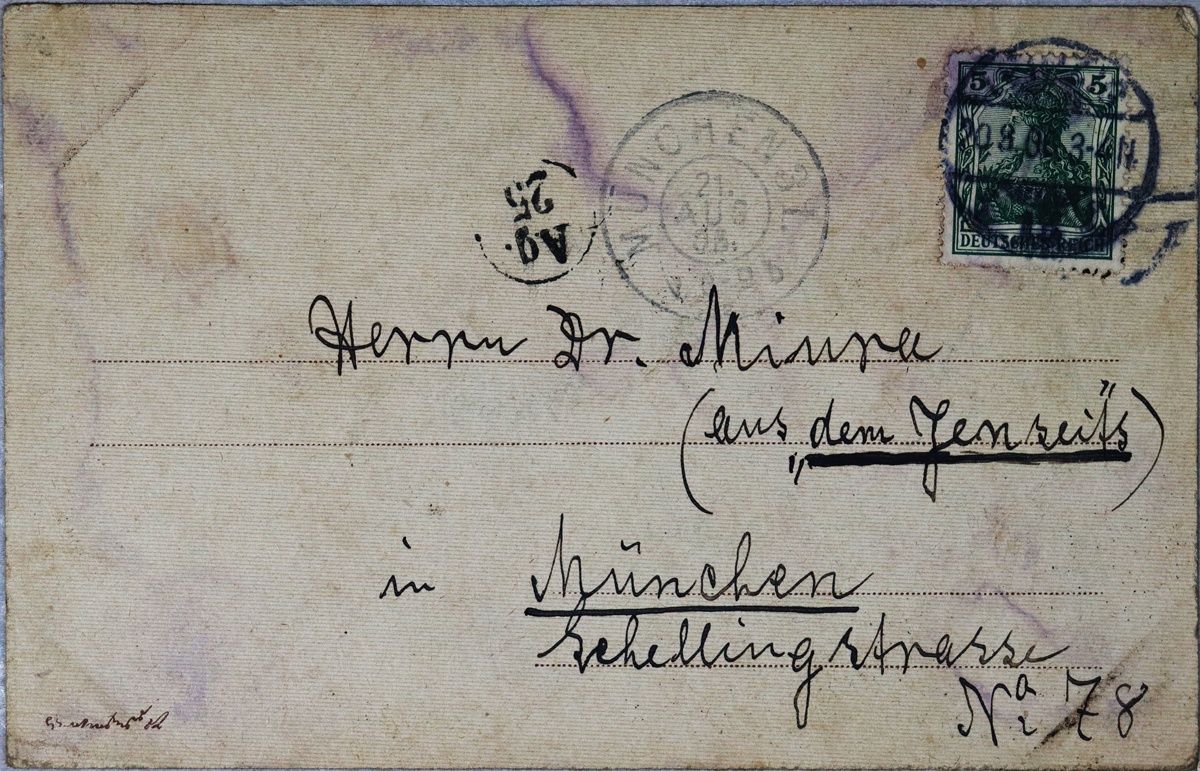 5 5
DEUTSCHES REICH
MÜNCHEN 31.
21.
AUG
AG.
25
Herrn Dr. Miura
(aus „dem Jenseits”)
in München
Schellingstrasse
No 78